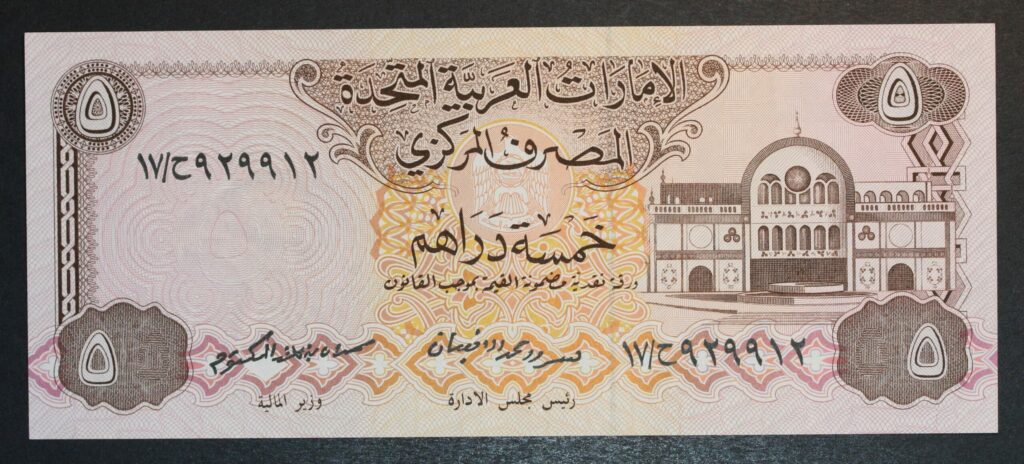 ٥ الإمارات العربية المتحدة ٥
المصرف المركزي
١٧/ح٩٢٩٩١٢
خمسة دراهم
ورقة نقدية مضمونة القيمة بموجب القانون
١٧/ح٩٢٩٩١٢
٥ ٥
رئيس مجلس الادارة
وزير المالية